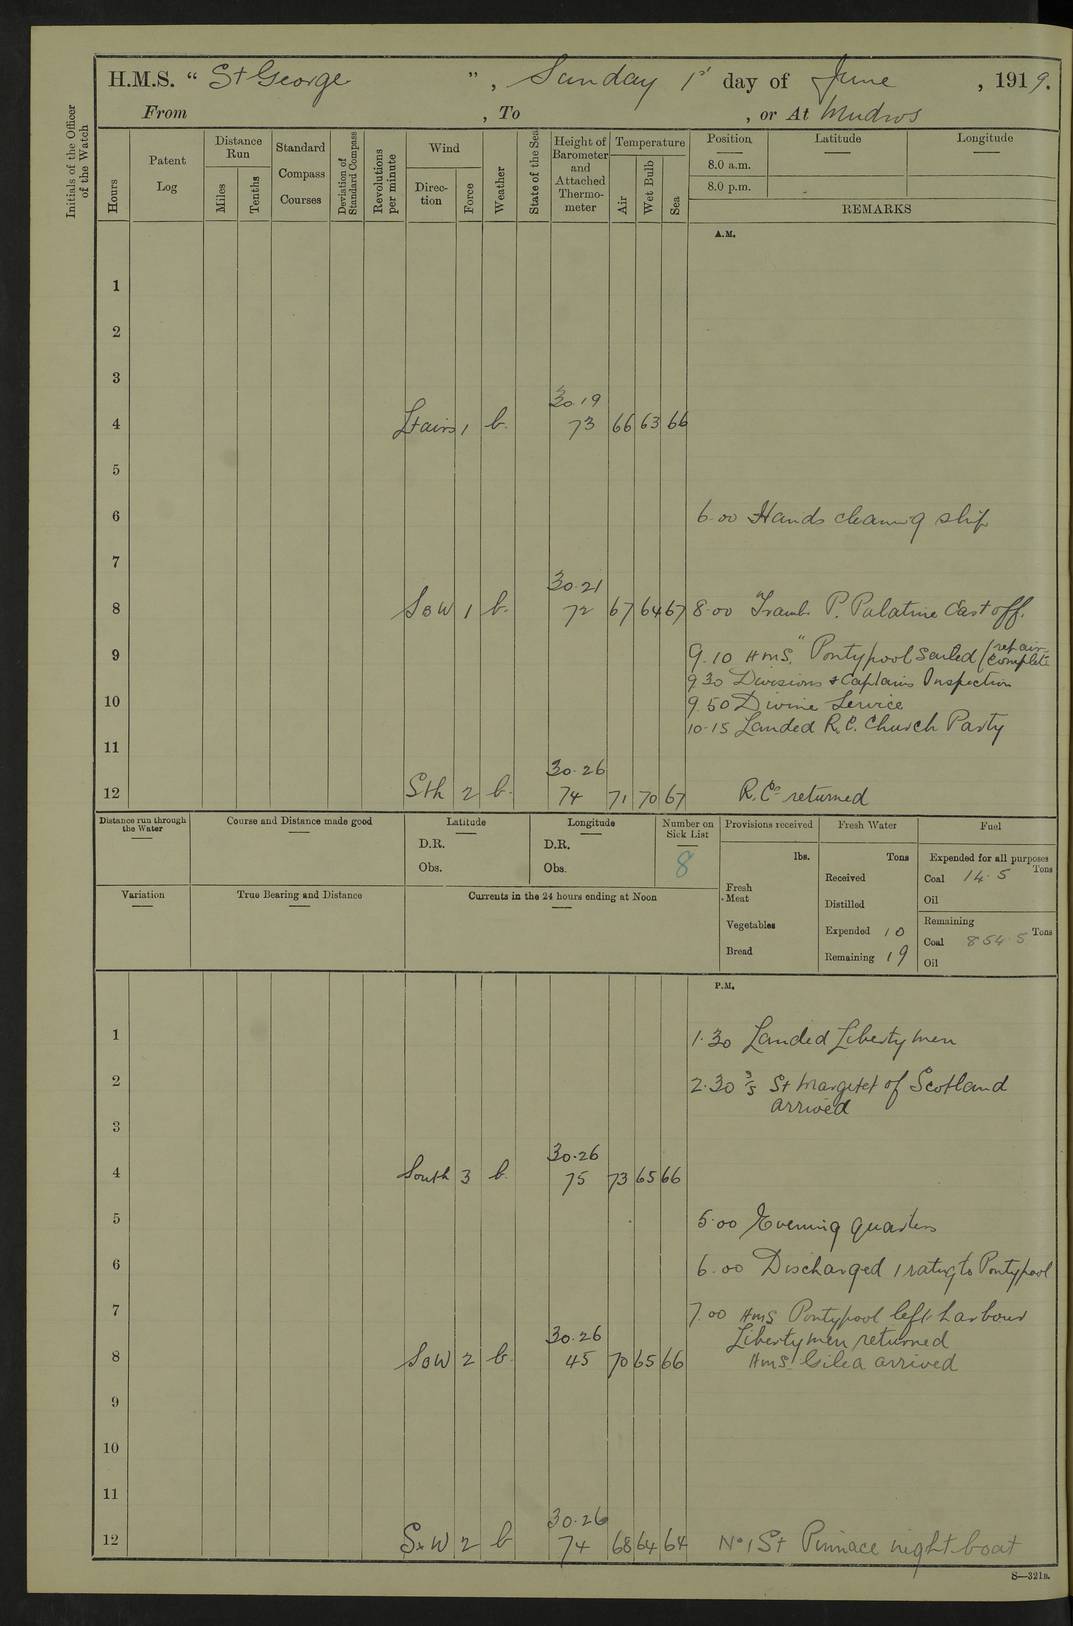 H.M.S. “ St George ” , Sunday 1st day of June , 1919.
From , To , or At Mudros
Initials of the Officer of the Watch
Hours
Patent Log
Distance Run
Miles
Tenths
Standard Compass Courses
Deviation of Standard Compass
Revolutions per minute
Wind
Direc-tion
Force
Weather
State of the Sea
Height of Barometer and Attached Thermo-meter
Temperature
Air
Wet Bulb
Sea
Position Latitude Longitude
8.0 a.m.
8.0 p.m.
REMARKS
A.M.
1
2
3
30.19
4 Lt airs 1 b. 73 66 63 66
5
6 6.00 Hands cleaning ship
7
30.21
8 SBW 1 b. 72 67 64 67 8.00 P. Palatine Cast off.
9 9.10 HMS. "Pontypool sailed (repair complete
9.30 Divisions & Captains Inspection
10 9.50 Divine Service
10.15 Landed R.C. Church Party
11
30.26
12 Sth 2 b. 74 71 70 67 R.Cs returned
Distance run through the Water
Course and Distance made good
Latitude
D.R.
Obs.
Longitude
D.R.
Obs.
Number on Sick List
8
Provisions received
lbs.
Fresh Meat
Vegetables
Bread
Fresh Water
Tons
Received
Distilled
Expended 10
Remaining 19
Fuel
Expended for all purposes
Coal 14.5 Tons
Oil
Remaining
Coal 854.5 Tons
Oil
Variation
True Bearing and Distance
Currents in the 24 hours ending at Noon
P.M.
1 1.30 Landed Liberty men
2 2.30 S/S St Margaret of Scotland
arrived
3
30.26
4 South 3 b. 75 73 65 66
5 5.00 Evening quarters
6 6.00 Discharged 1 rating to Pontypool
7 7.00 HMS Pontypool left harbour
30.26 Liberty men returned
8 SBW 2 b. 45 70 65 66 HMS. Cilea arrived
9
10
11
30.26
12 SxW 2 b 74 68 64 64 No 1 St Pinnace night boat
S—321B.